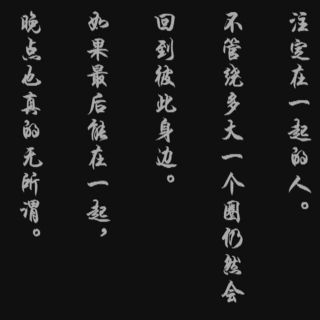 注定在一起的人。
不管绕多大一个圈仍然会
回到彼此身边。
如果最后能在一起，
晚点也真的无所谓。